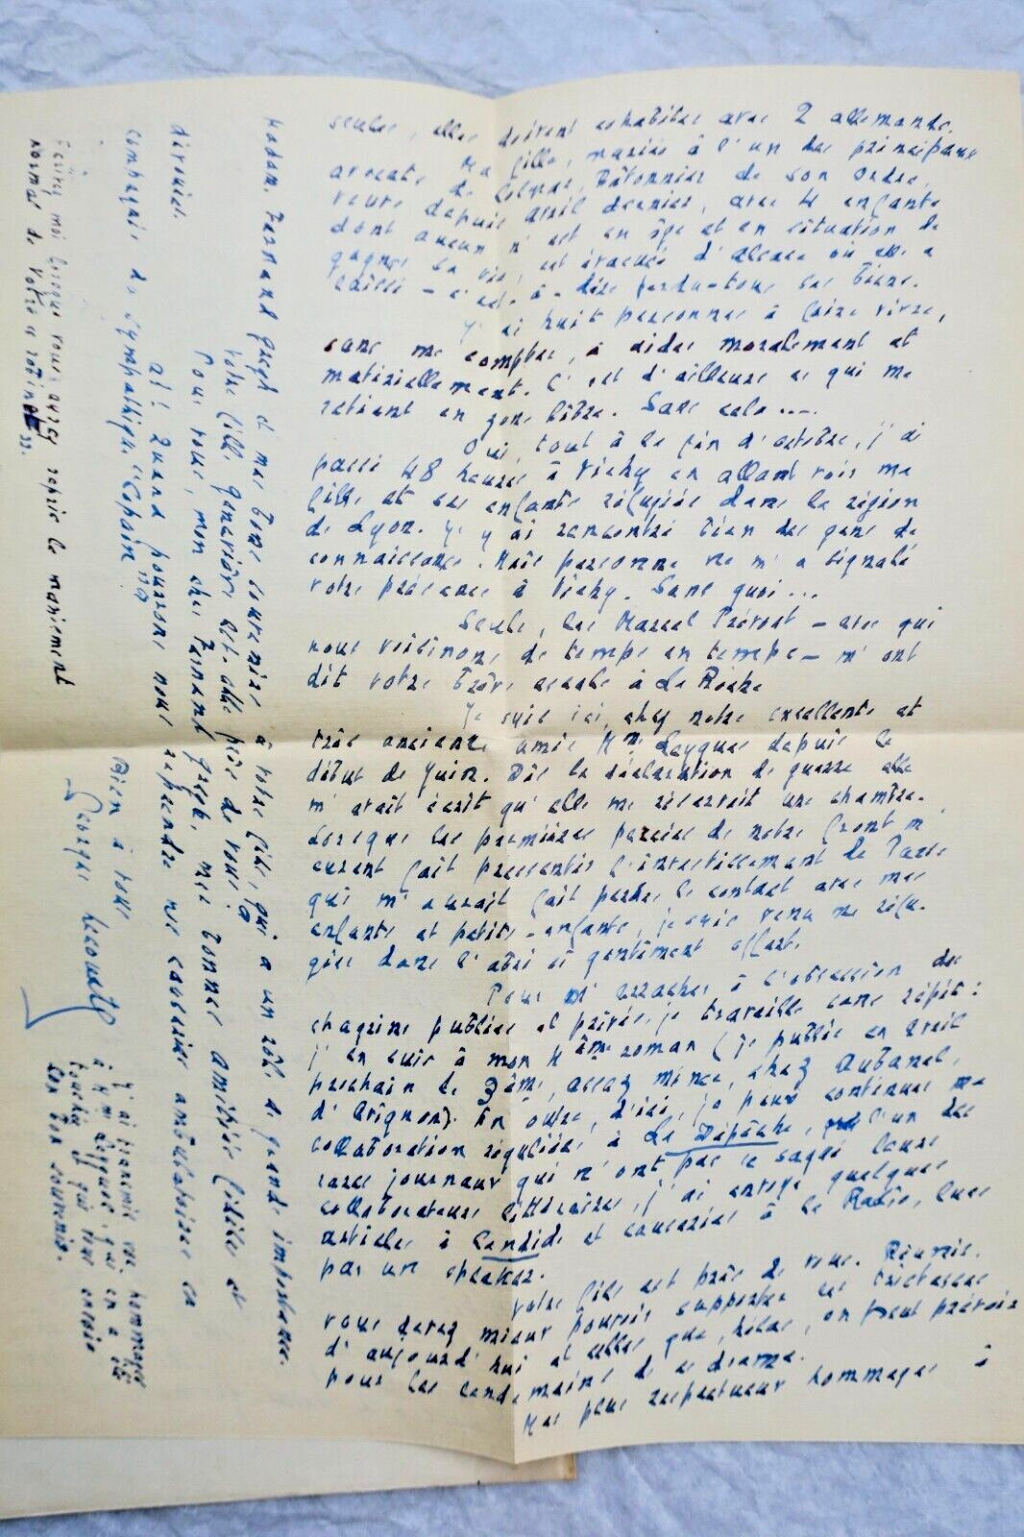 seules, elles doivent cohabiter avec 2 allemands.
Ma fille, mariée à l'un des principaux
avocats de Colmar, Bâtonnier de son Ordre,
veuve depuis avril dernier, avec 4 enfants
dont aucun n'est en âge et en situation de
gagner sa vie, est évacuée d'Alsace où elle a
laissé - c'est-à-dire perdu - tous ses biens.
J'ai huit personnes à faire vivre,
sans me compter, à aider moralement et
matériellement. C'est d'ailleurs ce qui me
retient en zone libre. Sans cela ....
Oui, tout à la fin d'octobre, j'ai
passé 48 heures à Vichy en allant voir ma
fille et ses enfants réfugiés dans la région
de Lyon. J'y ai rencontré bien des gens de
connaissance. Mais personne ne m'a signalé
votre présence à Vichy. Sans quoi ...
Seuls, les Marcel Prévost - avec qui
nous voisinons de temps en temps - m'ont
dit votre brève escale à La Roche
Je suis ici, chez notre excellente et
très ancienne amie Mme Leygues depuis le
début de Juin. Dès la déclaration de guerre elle
m'avait écrit qu'elle me réservait une chambre.
Lorsque les premières percées de notre front m'
eurent fait pressentir l'investissement de Paris
qui m'aurait fait perdre le contact avec mes
enfants et petits-enfants, je suis venu me réfu-
gier dans l'abri si gentiment offert.
Pour m'arracher à l'obsession des
chagrins publics et privés, je travaille sans répit :
j'en suis à mon 4ème roman (je publie en avril
prochain le 3ème, assez mince, chez Aubanel,
d'Avignon). En outre, d'ici, je peux continuer ma
collaboration régulière à La Dépêche, l'un des
rares journaux qui n'ont pas saqué leurs
collaborateurs littéraires, j'ai envoyé quelques
articles à Candide et causeries à la Radio, lues
par un speaker.
Votre fils est près de vous. Réunis,
vous serez mieux pouvoir supporter les tristesses
d'aujourd'hui et celles que, hélas, on peut prévoir
pour les lendemains de ce drame.
Mes plus respectueux hommages à
Madame Fernand Gregh et mes bons souvenirs à votre fils, qui a un rôle de grande importance.
Votre fille Geneviève est-elle près de vous ?
Pour vous, mon cher Fernand Gregh, mes bonnes amitiés fidèles et
dévouées.
Ah ! Quand pourrons-nous reprendre nos causeries ambulatoires en
compagnie du sympathique "Copain" ?
Bien à vous
Georges Lecomte
Ecrivez moi lorsque vous aurez repris le maniement
normal de votre "rétine".
J'ai transmis vos hommages
à Mme Leygues, qui en a été
touchée et qui vous envoie
ses bons souvenirs.